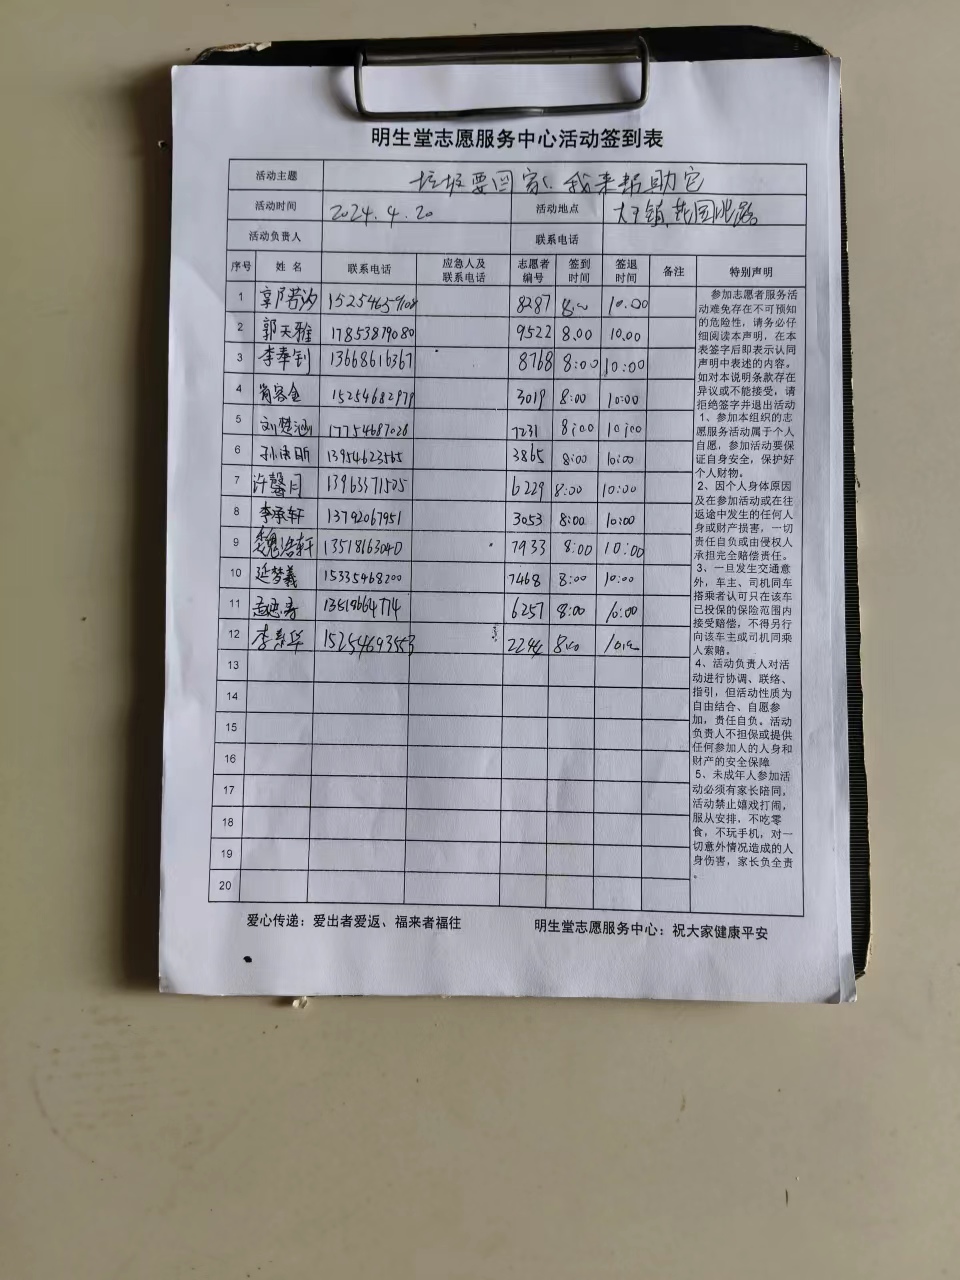 明生堂志愿服务中心活动签到表
活动主题 垃圾要回家、我来帮助它
活动时间 2024.4.20 活动地点 大王镇
活动负责人 联系电话
序号 姓名 联系电话 应急人及联系电话 志愿者编号 签到时间 签退时间 备注 特别声明
1 8287 8:00 10:00
2 郭天雅 17853879080 9522 8.00 10.00
3 李奉钊 13668616367 8768 8:00 10:00
4 15254682979 3019 8:00 10:00
5 刘楚涵 17754687028 7231 8:00 10:00
6 13954623565 3865 8:00 10:00
7 许馨月 13963371505 6229 8:00 10:00
8 李承轩 13792067951 3053 8:00 10:00
9 魏浩轩 7933 8:00 10:00
10 延梦羲 15335468200 7468 8:00 10:00
11 6257 8:00 10:00
12 15254693553 2294 8:00
13
14
15
16
17
18
19
20
参加志愿者服务活
动难免存在不可预知
的危险性，请务必仔
细阅读本声明，在本
表签字后即表示认同
声明中表述的内容。
如对本说明条款存在
异议或不能接受，请
拒绝签字并退出活动
1、参加本组织的志
愿服务活动属于个人
自愿，参加活动要保
证自身安全，保护好
个人财物。
2、因个人身体原因
及在参加活动或在往
返途中发生的任何人
身或财产损害，一切
责任自负或由侵权人
承担完全赔偿责任。
3、一旦发生交通意
外，车主、司机同车
搭乘者认可只在该车
已投保的保险范围内
接受赔偿，不得另行
向该车主或司机同乘
人索赔。
4、活动负责人对活
动进行协调、联络、
指引，但活动性质为
自由结合、自愿参
加，责任自负。活动
负责人不担保或提供
任何参加人的人身和
财产的安全保障
5、未成年人参加活
动必须有家长陪同，
活动禁止嬉戏打闹，
服从安排，不吃零
食，不玩手机，对一
切意外情况造成的人
身伤害，家长负全责
。
爱心传递：爱出者爱返、福来者福往 明生堂志愿服务中心：祝大家健康平安